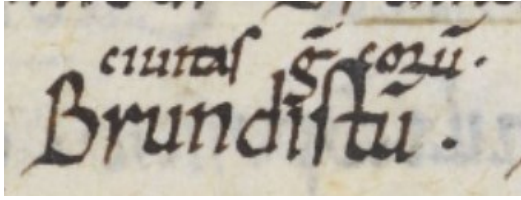 ciuitas g̃ coꝝũ.
Brundistũ.